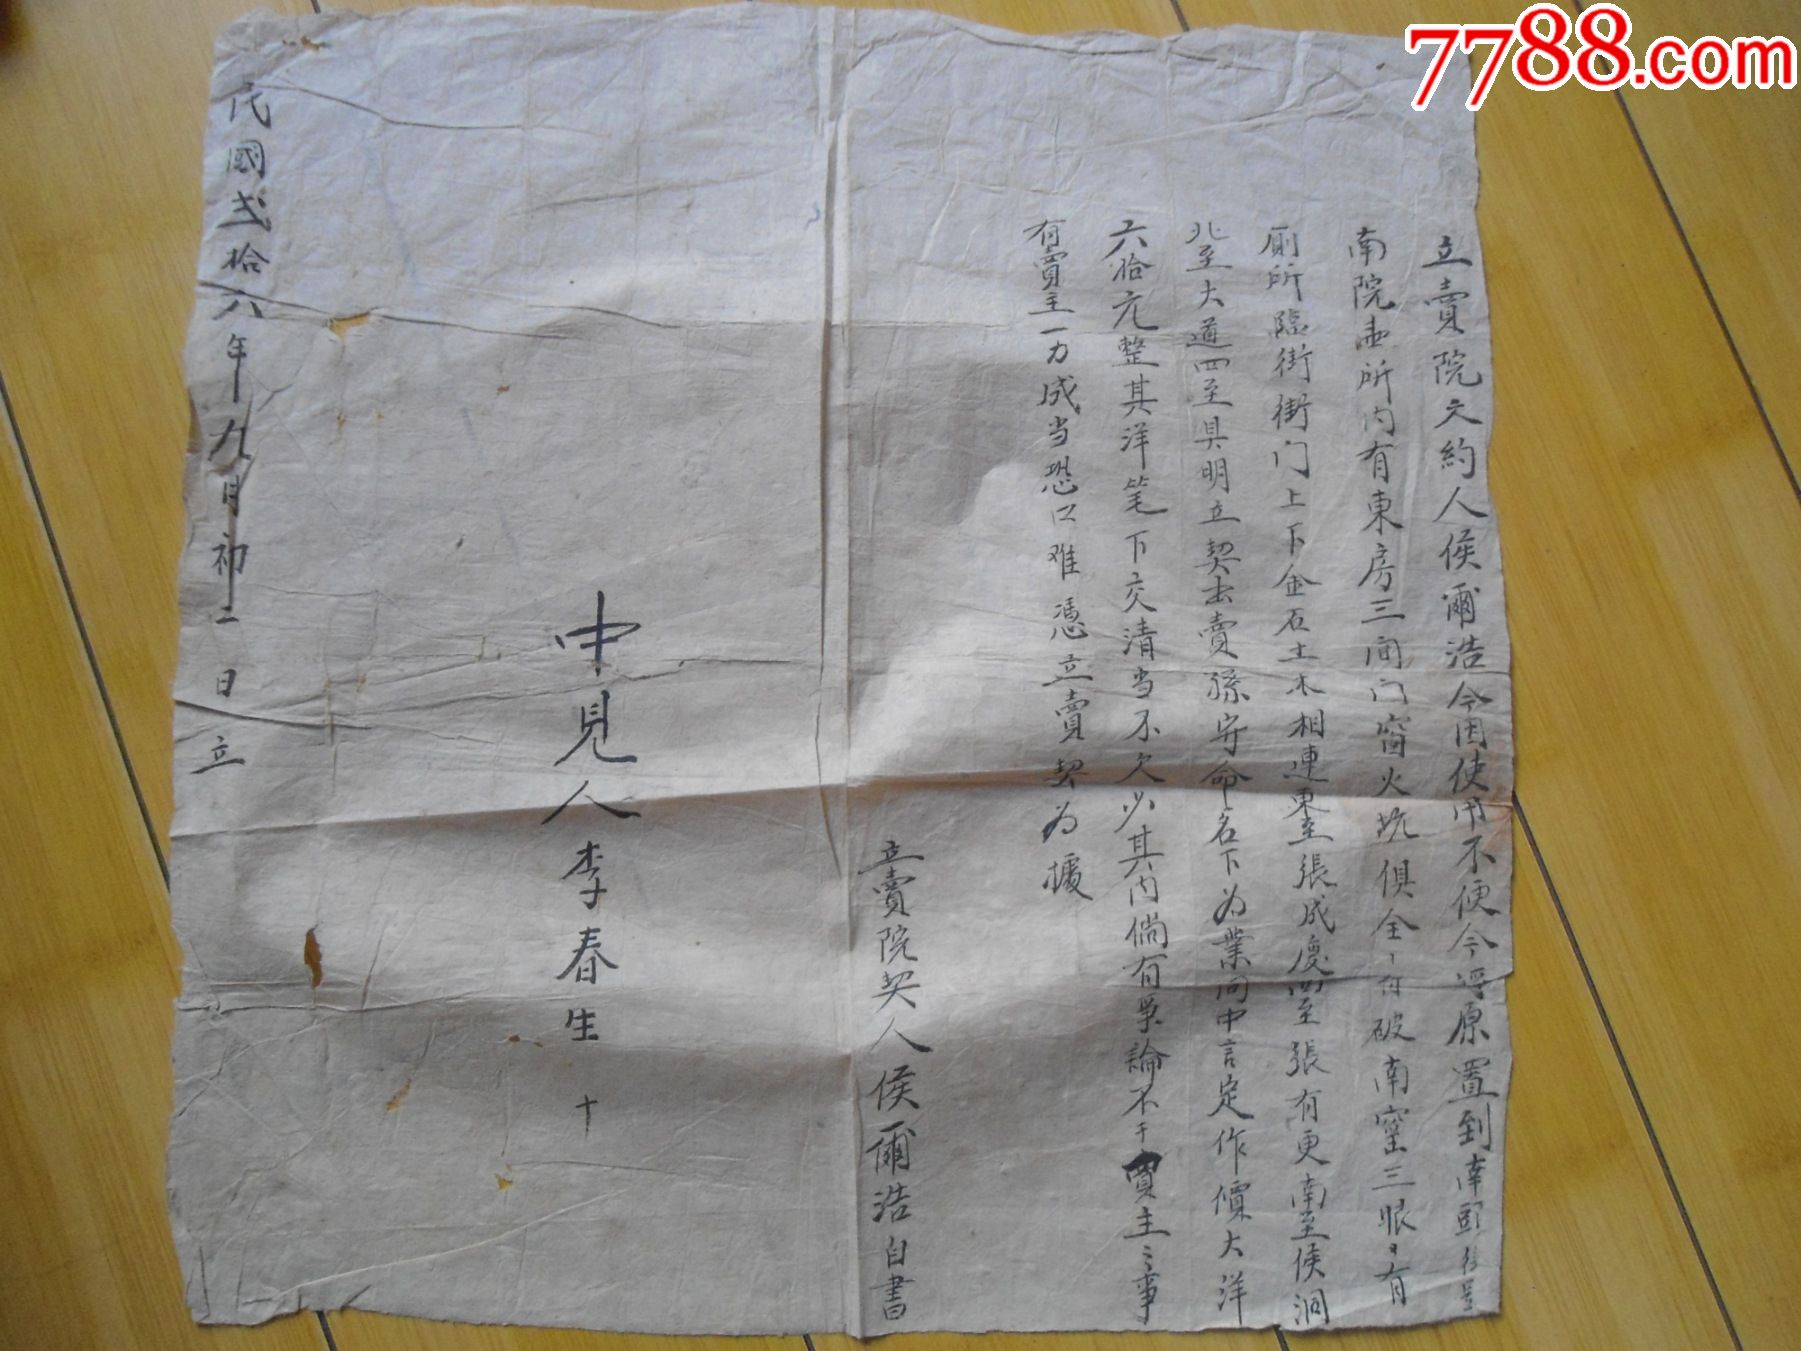 7788.com
立賣院文約人侯爾浩今因使用不便今将原置到南頭
南院壹所内有東房三间门窗火坑俱全有破南窑三眼有
厠所臨街街门上下金石土木相連東至張成慶西至張有更南至侯润
北至大道四至具明立契出賣孫守命名下为業同中言定作價大洋
六拾元整其洋笔下交清当不欠少其内倘有爭論不干買主之事
有賣主一力成当恐口难憑立賣契为據
立賣院契人侯爾浩自書
中見人李春生十
民國弍拾六年九月初二日立